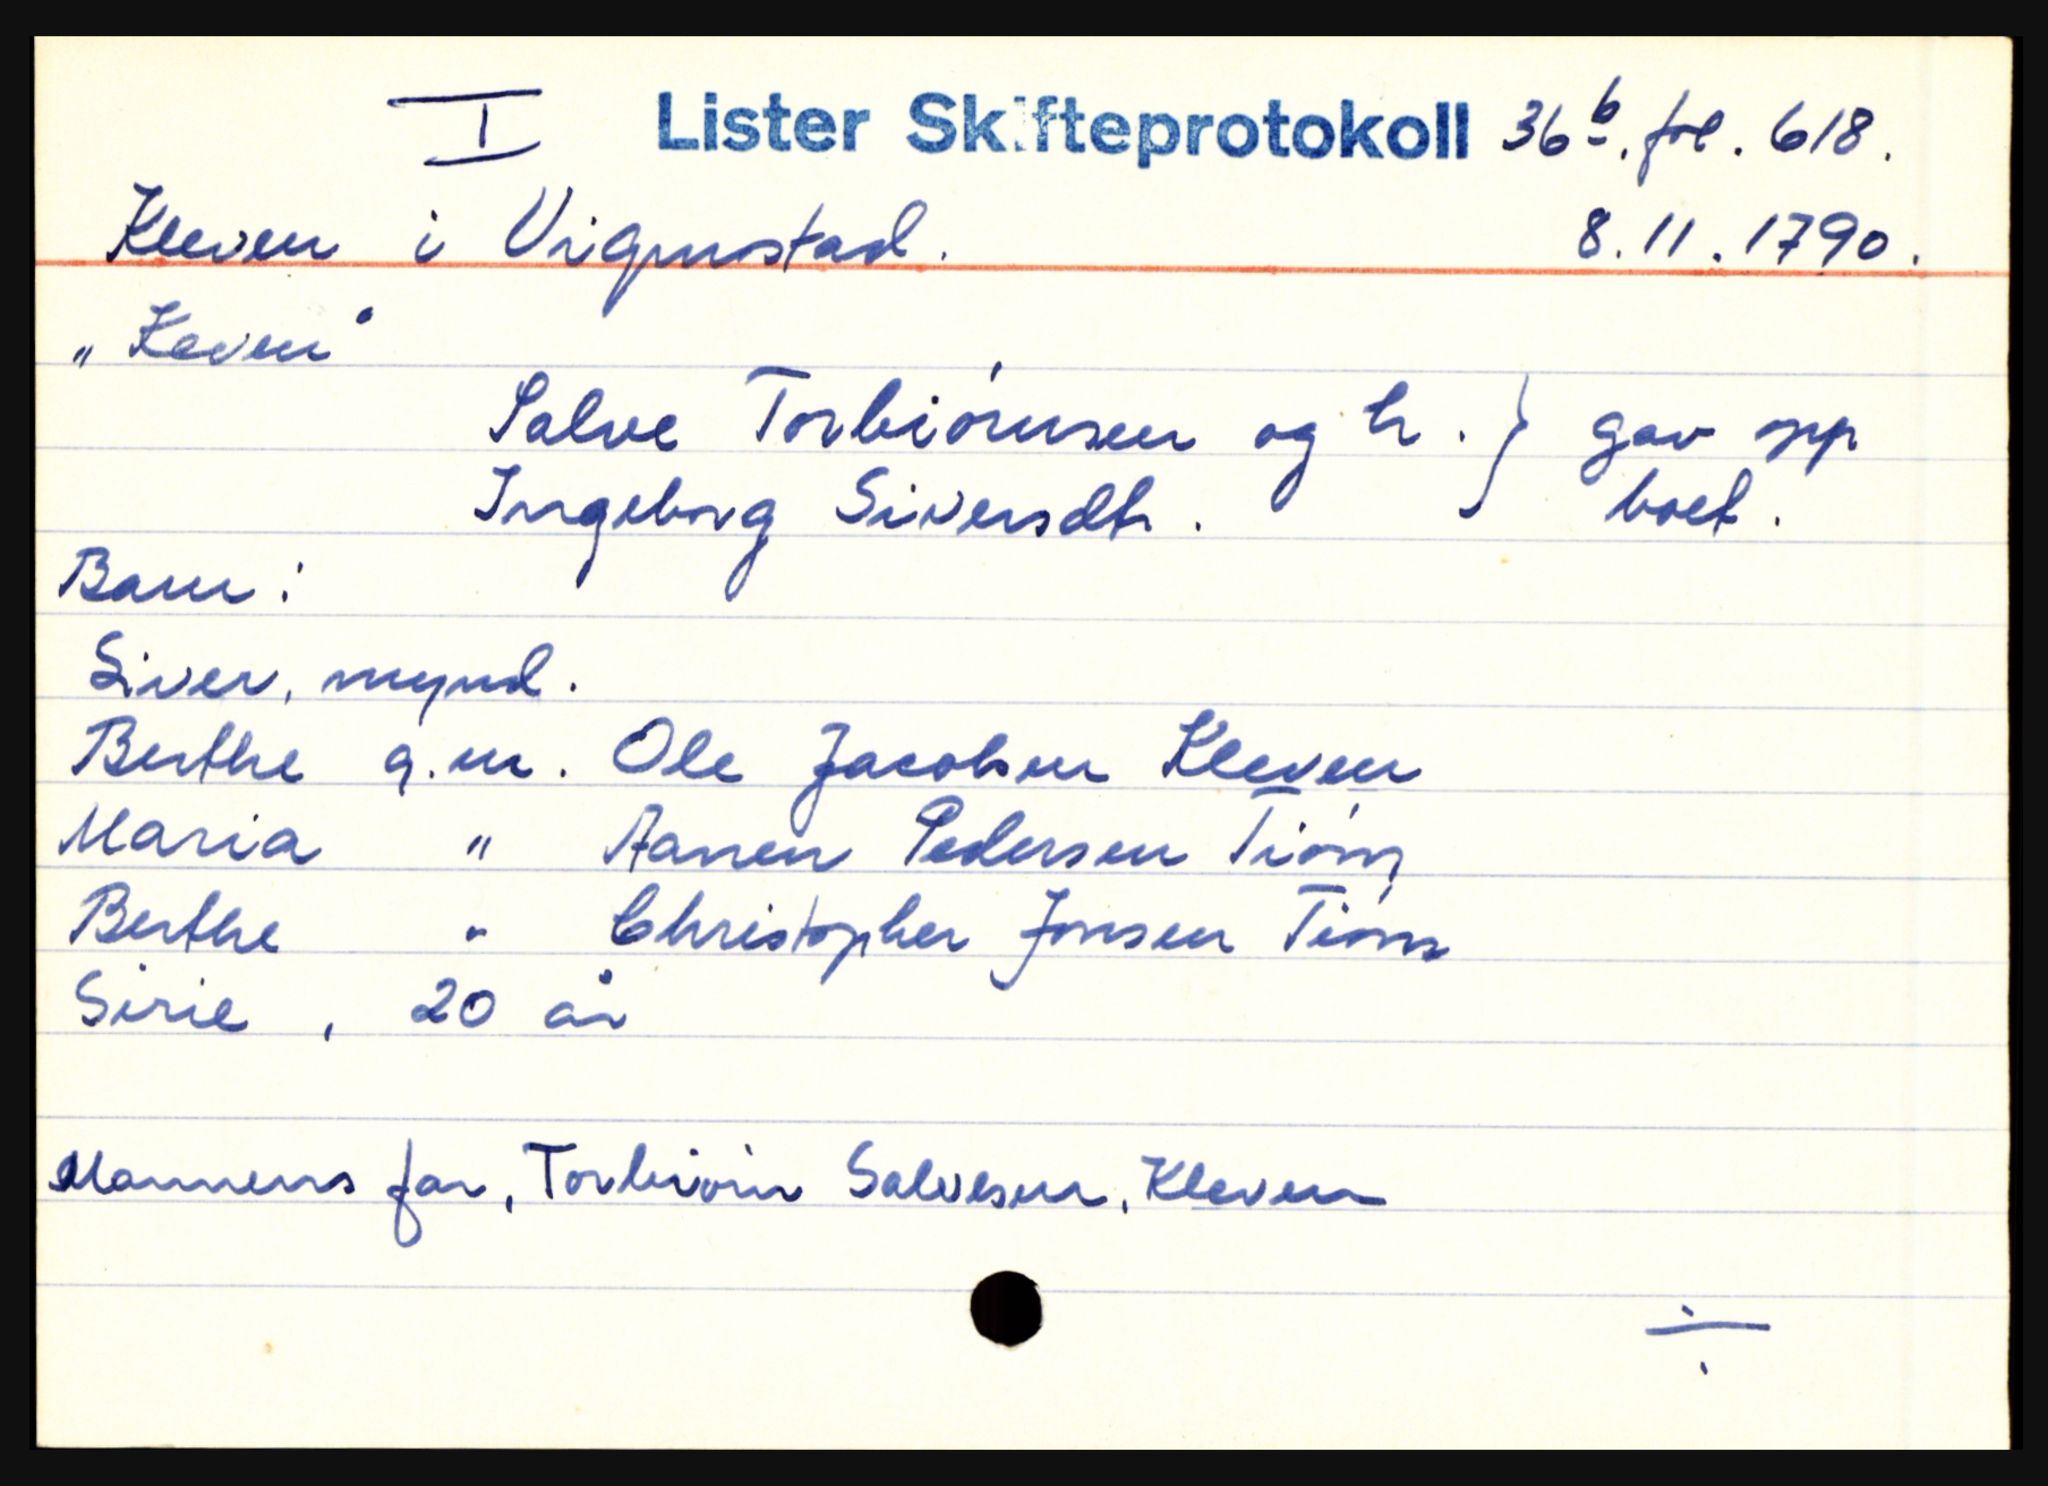 I Lister Skifteprotokoll 36b. fol. 618.
Kleven i Vigmostad. 8.11.1790.
„Keven"
Salve Torbiørnsen og h. } gav opp
Ingeborg Siversdtr. boet.
Barn:
Siver, mynd.
Berthe g.m. Ole Jacobsen Kleven
Maria " Aanen Pedersen Tiøm
Berthe " Christopher Jonsen Tiøm
Sirie, 20 år
Mannens far, Torbiørn Salvesen, Kleven
÷